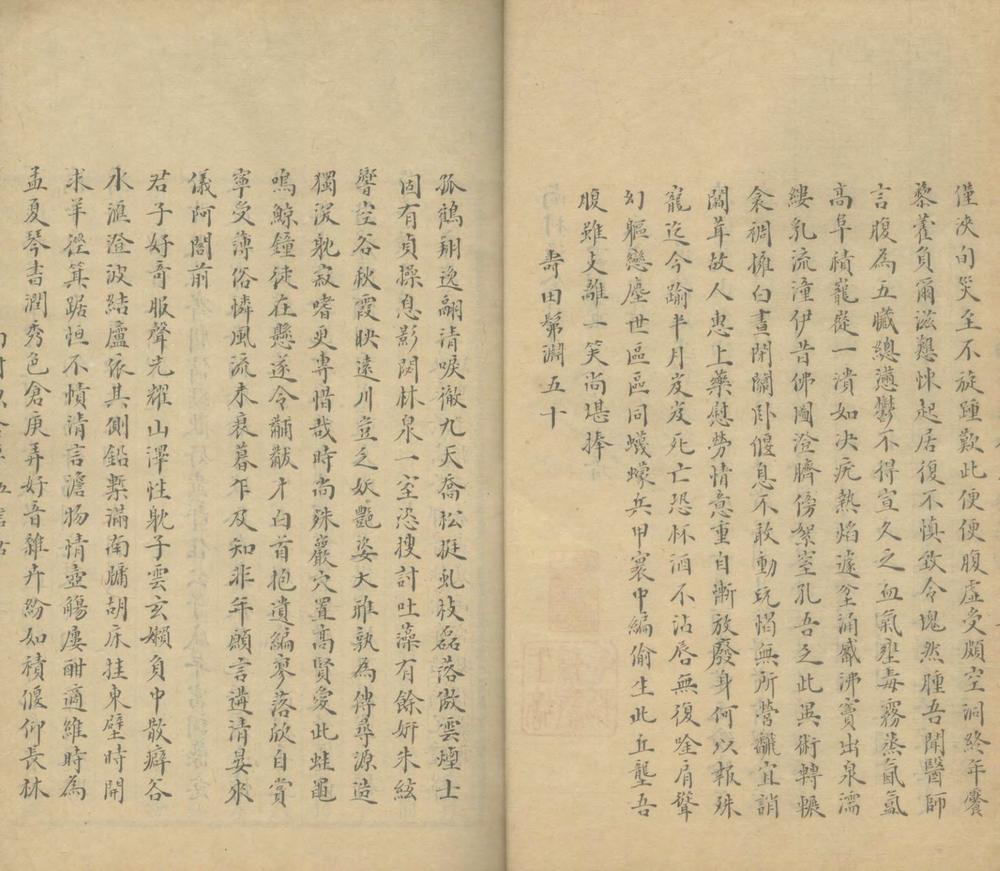 僅浹旬災至不旋踵歎此便便腹虛受頗空洞終年饜
藜藿貝爾滋愆悚起居復不慎致令塊然腫吾聞醫師
言腹為五臟總懣鬱不得宣久之血氣壅毒霧蒸氤氳
高阜積巃嵸一潰如决疣熱焰遽坌涌感沸竇出泉濡
縷乳流湩伊昔佛圖澄臍傍絮窒孔吾乏此異術轉輾
衾裯擁白晝閉關卧偃息不敢動玩愒無所營齷宜誚
闒茸故人惠上藥慰勞情意重自漸放廢身何以報殊
寵迄今踰半月岌岌死亡恐杯酒不沾唇無復唫肩聳
幻軀戀塵世區區同蠛蠓兵甲裏中編偷生此丘壟吾
腹雖支離一笑尚堪捧
壽田鬅淵五十
孤鶴翔逸翮清唳徹九天喬松挺虬枝磊落傲雲煙士
固有貞操息影閟林泉一室恣搜討吐藻有餘妍朱絃
響空谷秋霞映遠川豈乏妖艷姿大雅孰為傳尋源造
獨深躭寂嗜更專惜哉時尚殊巖穴置高賢愛此蛙黽
鳴鯨鐘徒在懸遂令黼黻才白首抱遺編寥落欣自賞
寧受薄俗憐風流未衰暮乍及知非年願言遘清晏來
儀阿閣前
君子好奇服聲光耀山澤性躭子雲玄嬾負巾散癖谷
水滙澄波結廬依其側鉛槧滿南牖胡床挂東壁時開
求羊徑箕踞怛不幘清言澹物情壺觴屢酣適維時為
孟夏琴書潤秀色倉庚弄好音雜卉紛如積偃仰長林